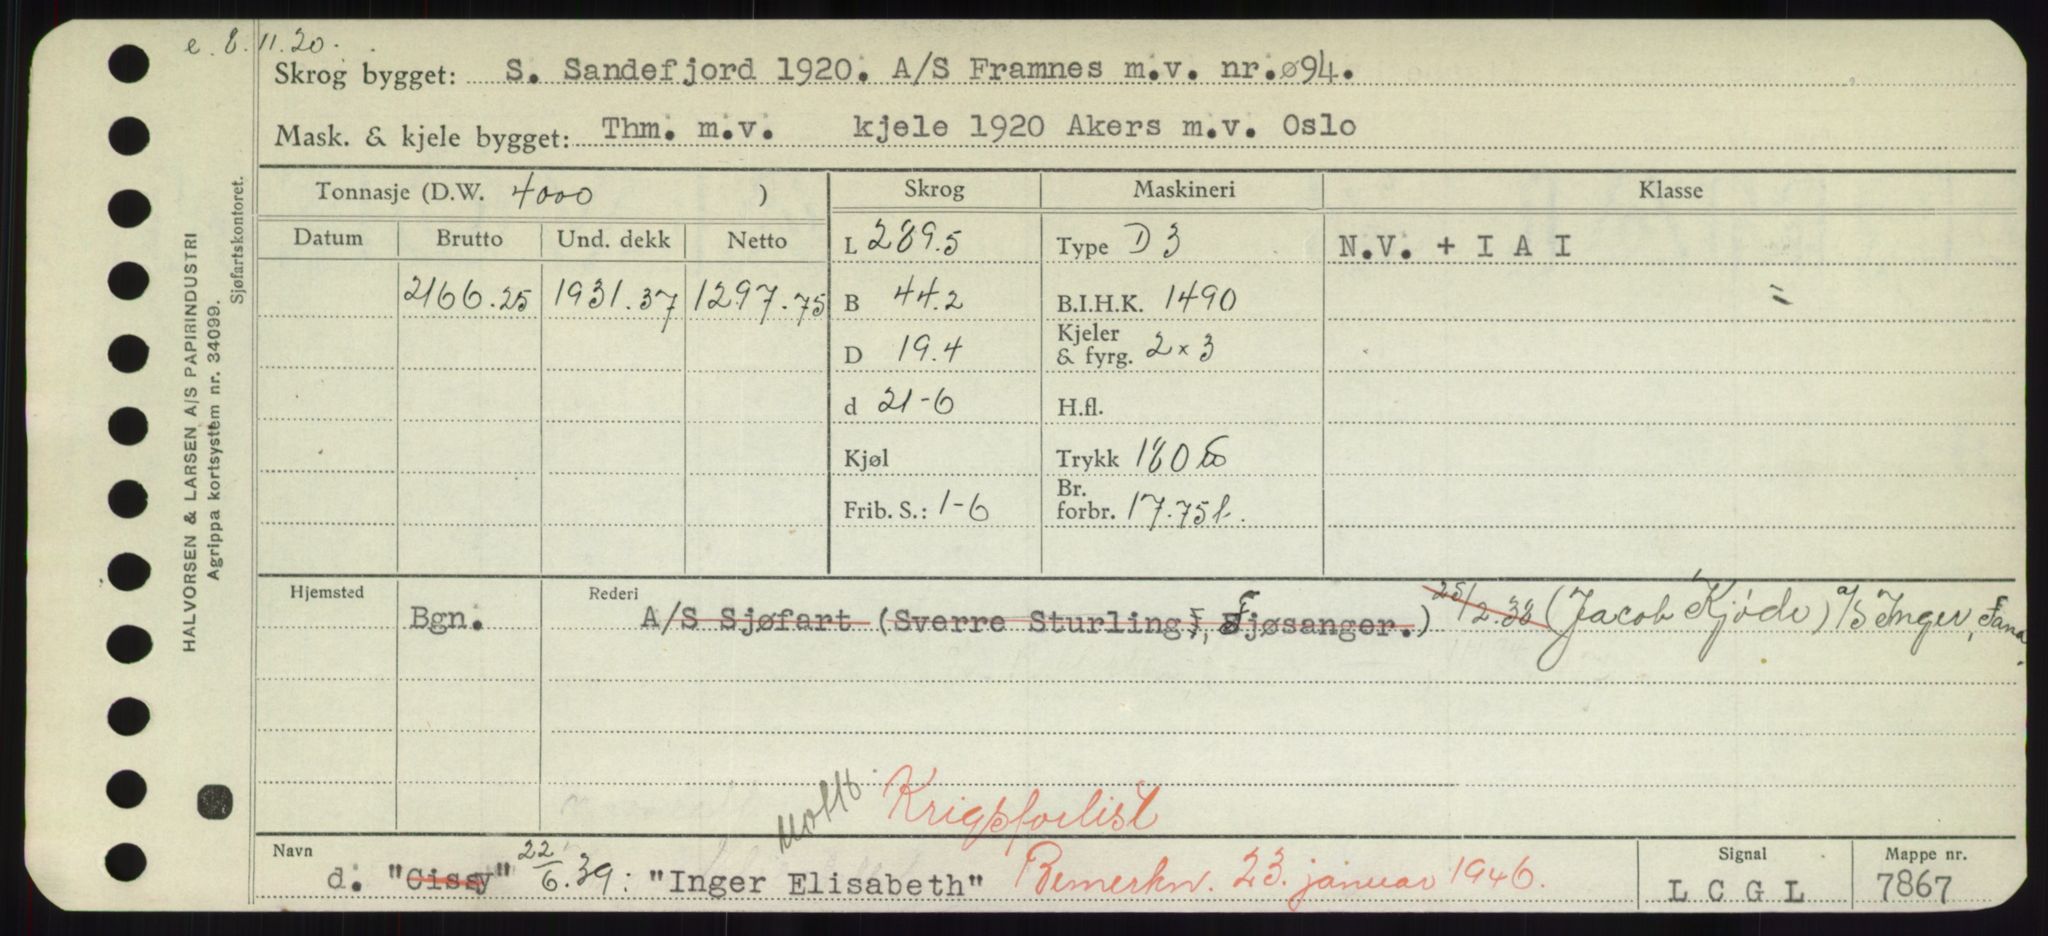 e. 8.11.20.
Skrog bygget: S. Sandefjord 1920. A/S Framnes m.v. nr.ø94.
Mask. & kjele bygget: Thm. m.v. kjele 1920 Akers m.v. Oslo
Tonnasje (D.W. 4000 )
Skrog
Maskineri
Klasse
Datum Brutto Und. dekk Netto
L 289.5
Type D 3
N.V. + I A I
2166.25 1931.37 1297.75
B 44.2
B.I.H.K. 1490
D 19.4
Kjeler
& fyrg. 2 x 3
d 21-6
H.fl.
Kjøl
Trykk 180
Frib. S.: 1-6
Br.
forbr. 17.75 t.
Hjemsted
Bgn.
Rederi
A/S Sjøfart (Sverre Sturling, Fjøsanger.) 25/2.38 (Jacob Kjøde) A/S Inger, Fana.
Krigsforlist
Navn
d. "Cissy" 22/6.39: "Inger Elisabeth" Bemerkn. 23. januar 1946.
Signal
L C G L
Mappe nr.
7867
HALVORSEN & LARSEN A/S PAPIRINDUSTRI
Agrippa kortsystem nr. 34099.
Sjøfartskontoret.